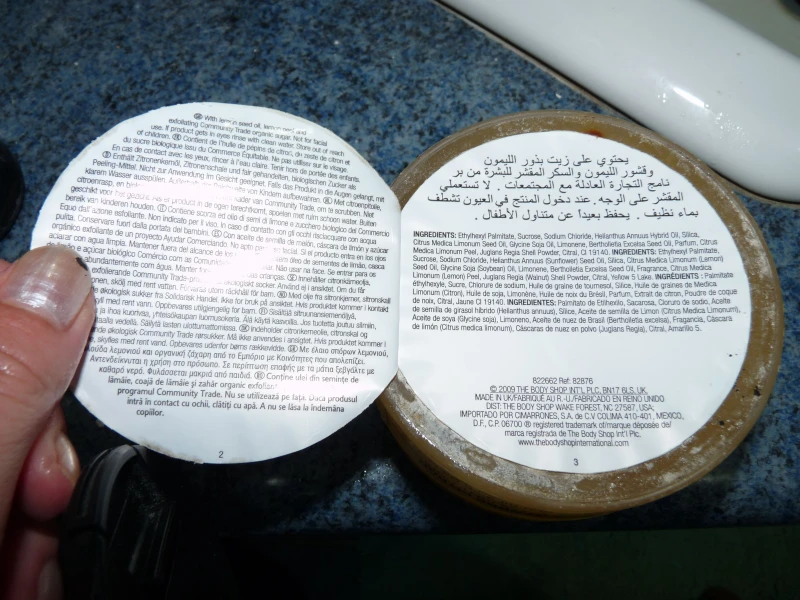 With lemon seed oil, lemon peel and
exfoliating Community Trade organic sugar. Not for facial
use. If product gets in eyes rinse with clean water. Store out of reach
of children. Contient de l'huile de pépins de citron, de zeste de citron et
du sucre biologique issu du Commerce Equitable. Ne pas utiliser sur le visage.
En cas de contact avec les yeux, rincer à l'eau claire. Tenir hors de portée des enfants.
Enthält Zitronenkernöl, Zitronenschale und fair gehandelten, biologischen Zucker als
Peeling-Mittel. Nicht zur Anwendung im Gesicht geeignet. Falls das Produkt in die Augen gelangt, mit
klarem Wasser ausspülen. Kindern aufbewahren. Met citroenpitolie,
citroenrasp, en van Community Trade, om te scrubben. Niet
geschikt voor het gezicht. Als er product in de ogen terechtkomt, spoelen met ruim schoon water. Buiten
bereik van kinderen houden. Contiene scorza ed olio di semi di limone e zucchero biologico del Commercio
Equo dall'azione esfoliante. Non indicato per il viso. In caso di contatto con gli occhi risciacquare con acqua
pulita. Conservare fuori dalla portata dei bambini. Con aceite de semilla de melón, cáscara de limón y azúcar
orgánico exfoliante de un proyecto Ayudar Comerciando. No facial. Si el producto entra en los ojos
aclarar con agua limpia. Mantener fuera del alcance de los óleo de sementes de limão, casca
e açúcar biológico Comércio com as Não usar na face. Se entrar para os
abundantemente com água. Manter crianças. Innehåller citronkärnolja,
exfolierande Community Trade ekologiskt socker. Använd ej i ansiktet. Om du får
ögonen, skölj med rent vatten. Förvaras utom räckhåll för barn. Med olje fra sitronkjerner, sitronskall
økologisk sukker fra Solidarisk Handel. Ikke for bruk på ansiktet. Hvis produktet kommer i kontakt
skyll med rent vann. Oppbevares utilgjengelig for barn. Sisältää sitruunansiemenöljyä,
ja ihoa kuorivaa, yhteisökaupan luomusokeria. Älä käytä kasvoilla. Jos tuotetta joutuu silmiin,
vedellä. Säilytä lasten ulottumattomissa. Indeholder citronkerneolie, citronskal og
økologisk Community Trade rørsukker. Må ikke anvendes i ansigtet. Hvis produktet kommer i
skylles med rent vand. Opbevares udenfor børns rækkevidde. Με έλαιο σπόρων λεμονιού,
φλούδα λεμονιού και οργανική ζάχαρη από το Εμπόριο με Κοινότητες που απολεπίζει.
Αντενδείκνυται η χρήση στο πρόσωπο. Σε περίπτωση επαφής με τα μάτια ξεβγάλτε με
καθαρό νερό. Φυλάσσεται μακριά από παιδιά. Conține ulei din semințe de
lămâie, coajă de lămâie și zahăr organic exfoliant
programul Community Trade. Nu se utilizează pe față. Dacă produsul
intră în contact cu ochii, clătiți cu apă. A nu se lăsa la îndemâna
copiilor.
2
يحتوي على زيت بذور الليمون
وقشور الليمون والسكر المقشر للبشرة من بر
نامج التجارة العادلة مع المجتمعات . لا تستعملي
المقشر على الوجه. عند دخول المنتج في العيون تشطف
بماء نظيف . يحفظ بعيداً عن متناول الأطفال .
INGREDIENTS: Ethylhexyl Palmitate, Sucrose, Sodium Chloride, Helianthus Annuus Hybrid Oil, Silica,
Citrus Medica Limonum Seed Oil, Glycine Soja Oil, Limonene, Bertholletia Excelsa Seed Oil, Parfum, Citrus
Medica Limonum Peel, Juglans Regia Shell Powder, Citral, CI 19140. INGREDIENTS: Ethylhexyl Palmitate,
Sucrose, Sodium Chloride, Helianthus Annuus (Sunflower) Seed Oil, Silica, Citrus Medica Limonum (Lemon)
Seed Oil, Glycine Soja (Soybean) Oil, Limonene, Bertholletia Excelsa Seed Oil, Fragrance, Citrus Medica
Limonum (Lemon) Peel, Juglans Regia (Walnut) Shell Powder, Citral, Yellow 5 Lake. INGRÉDIENTS : Palmitate
éthylhexyle, Sucre, Chlorure de sodium, Huile graine de tournesol, Silice, Huile de graines de Medica
Limonum (Citron), Huile de soja, Limonène, Huile de noix du Brésil, Parfum, Extrait de citron, Poudre de coque
de noix, Citral, Jaune CI 19140. INGREDIENTES: Palmitato de Etilhexilo, Sacarosa, Cloruro de sodio, Aceite
de semilla de girasol híbrido (Helianthus annuus), Silice, Aceite de semilla de Limón (Citrus Medica Limonum),
Aceite de soya (Glycine soja), Limoneno, Aceite de nuez de Brasil (Bertholletia excelsa), Fragancia, Cáscara
de limón (Citrus medica limonum), Cáscaras de nuez en polvo (Juglans Regia), Citral, Amarillo 5.
822662 Ref: 82876
© 2009 THE BODY SHOP INT'L PLC, BN17 6LS, UK.
MADE IN UK/FABRIQUÉ AU R.-U./FABRICADO EN REINO UNIDO
DIST: THE BODY SHOP WAKE FOREST, NC 27587, USA;
IMPORTADO POR CIMARRONES, S.A. de C.V COLIMA 410-401, MEXICO,
D.F., C.P. 06700 ® registered trademark of/marque déposée de/
marca registrada de The Body Shop Int'l Plc.
www.thebodyshopinternational.com
3